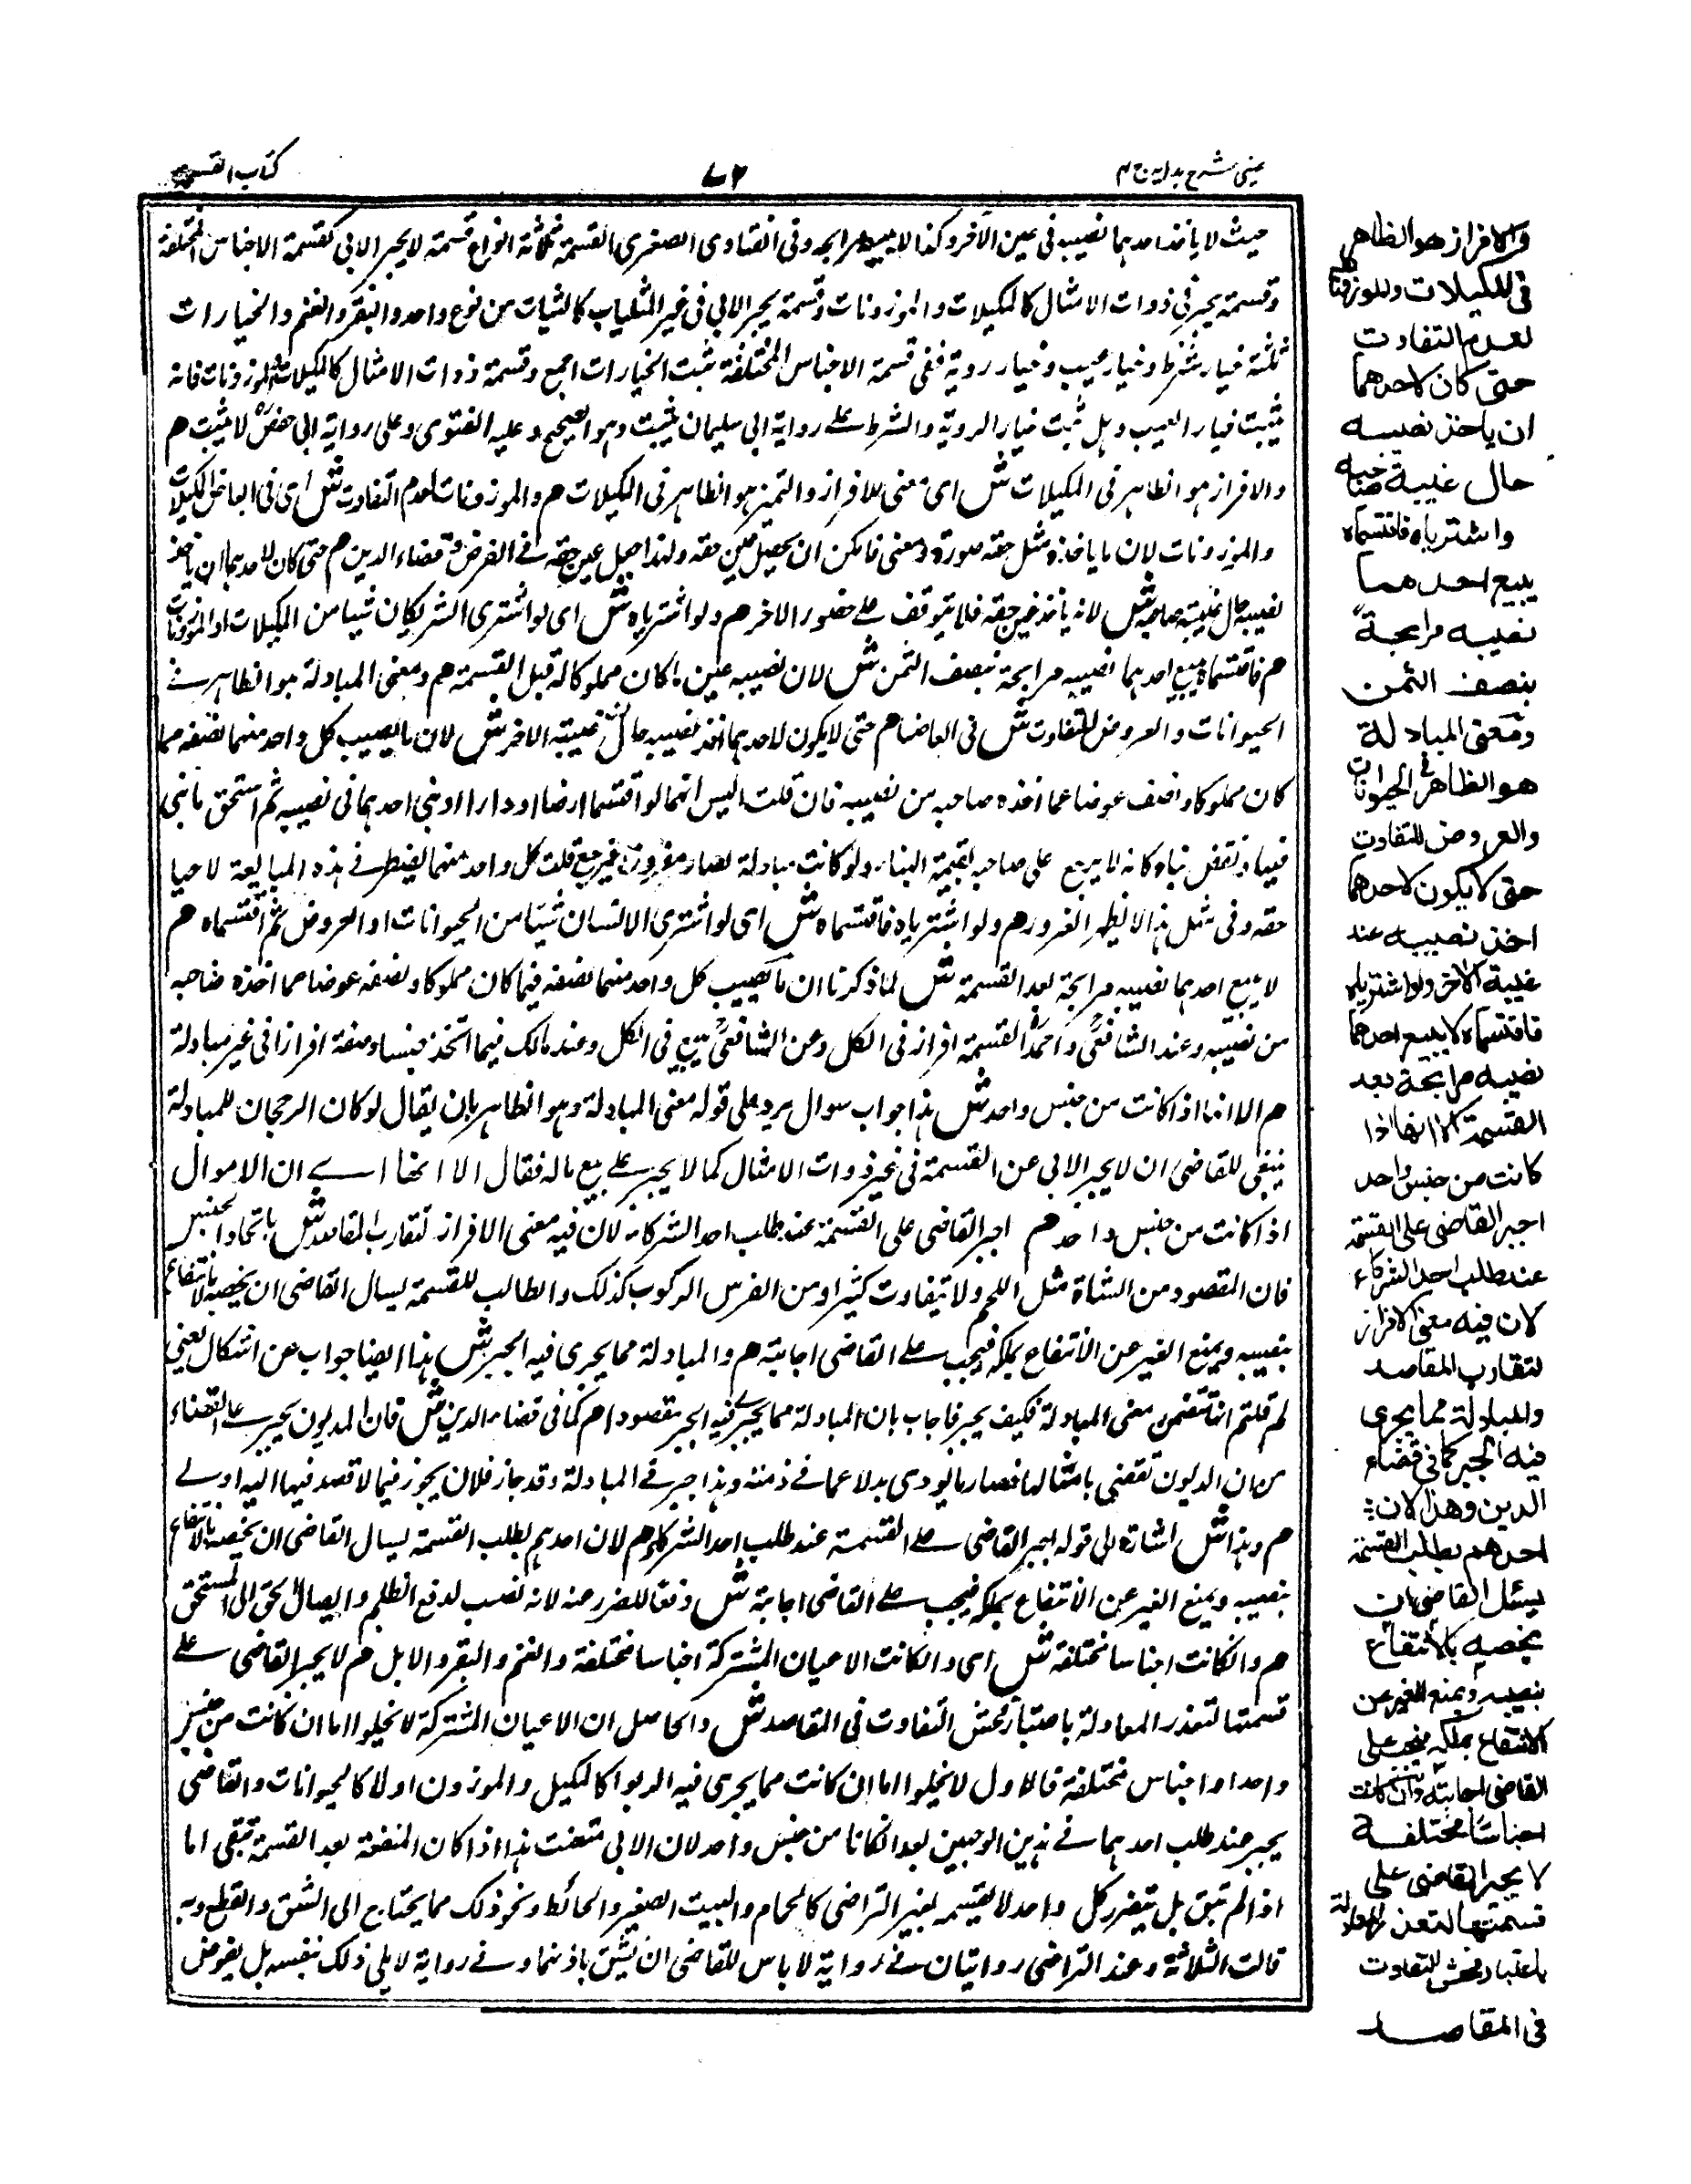 عینی شرح ہدایہ ج ۴
۷۲
کتاب القسمة
حيث لا ياخذ احدهما نصيبه فى عين الآخر وكذا لا يبيعه مرابحه وفى الفتاوى الصغرى القسمة ثلاثة انواع قسمة لا يجبر الابى كقسمة الاجناس المختلفة
وقسمة يجبر فى ذوات الامثال كالمكيلات والموزونات وقسمة يجبر الابى فى غير المثليات كالثياب من نوع واحد والبقر والغنم والخيارات
ثلثة خيار شرط وخيار عيب وخيار روية ففى قسمة الاجناس المختلفة تثبت الخيارات اجمع وقسمة ذوات الامثال كالمكيلات والموزونات فانه
يثبت خيار العيب وهل ثبت خيار الروية والشرط على رواية ابى سليمان يثبت وهو الصحيح وعليه الفتوى وعلى رواية ابى حفص لا يثبت م
والافراز هو الظاهر فى المكيلات ش اى معنى للافراز والتميز هو الظاهر فى المكيلات م والموزونات لعدم التفاوت ش اى فى ابعاض المكيلات
والموزونات لان ما ياخذه مثل حقه صورة ومعنى فامكن ان يجعل عين حقه ولهذا جعل عين حقه فى القرض وقضاء الدين م حتى كان لاحدهما ان ياخذ
نصيبه حال غيبة صاحبه ش لانه ياخذ عين حقه فلا يتوقف على حضور الاخر م ولو اشترياه ش اى لو اشترى الشريكان شيا من المكيلات او الموزونات
م فاقتسماه يبيع احدهما نصيبه مرابحة بنصف الثمن ش لان نصيبه عين ما كان مملوكا له قبل القسمة م ومعنى المبادلة هو الظاهر فى
الحيوانات والعروض للتفاوت ش فى ابعاضها م حتى لا يكون لاحدهما اخذ نصيبه حال غيبة الاخر ش لان ما يصيب كل واحد منهما نصفه مما
كان مملوكا ونصف عوضا عما اخذه صاحبه من نصيبه فان قلت اليس انهما لو اقتسما ارضا او دارا او بنى احدهما فى نصيبه ثم استحق ما بنى
فيها ونقض بناه كانه لا يرجع على صاحبه بقيمة البناء ولو كانت مبادلة لصار مغرورا فيرجع قلت كل واحد منهما يضطر فى هذه المبايعة لاحيا
حقه وفى مثل هذا لا يظهر الغرور م ولو اشترياه فاقتسماه ش اى لو اشترى الانسان شيئا من الحيوانات او العروض ثم اقتسماه م
لا يبيع احدهما نصيبه مرابحة بعد القسمة ش لما ذكرنا ان ما يصيب كل واحد منهما نصفه فيما كان مملوكا ونصفه عوضا عما اخذه صاحبه
من نصيبه وعند الشافعى واحمد القسمة افراز فى الكل وعن الشافعى بيع فى الكل وعند مالك فيما اتخذ جنسا وصفة افراز فى غير مبادلة
م الا انها اذا كانت من جنس واحد ش هذا جواب سوال يرد على قوله معنى المبادلة وهو الظاهر بان يقال لو كان الرجحان للمبادلة
ينبغى للقاضى ان لا يجبر الابى عن القسمة فى غير ذوات الامثال كما لا يجبر على بيع ماله فقال الا انها اى ان الاموال
اذا كانت من جنس واحد م اجبر القاضى على القسمة عند طلب احد الشركاء لان فيه معنى الافراز لتقارب المقاصد ش باتحاد الجنس
فان المقصود من الشاة مثل اللحم ولا يتفاوت كثيرا ومن الفرس الركوب كذلك والطالب للقسمة يسال القاضى ان يخصه بالانتفاع
بنصيبه ويمنع الغير عن الانتفاع بملكه فيجب على القاضى اجابته م والمبادلة مما يجرى فيه الجبر ش هذا ايضا جواب عن اشكال يعنى
لم قلتم انها تتضمن معنى المبادلة فكيف يجبر فاجاب بان المبادلة مما يجرى فيه الجبر مقصودا م كما فى قضاء الدين ش فان المديون يجبر على القضاء
مع ان الديون تقضى بامثالها فصار ما يودى بدلا عما فى ذمته وهذا جبر فى المبادلة وقد جاز فلان يجوز فيما لا قصد فيها اليه اولى
م وهذا ش اشارة الى قوله اجبر القاضى على القسمة عند طلب احد الشركاء م لان احدهم بطلب القسمة يسال القاضى ان يخصه بالانتفاع
بنصيبه ويمنع الغير عن الانتفاع بملكه فيجب على القاضى اجابته ش دفعا للضرر عنه لانه نصب لدفع الظلم وايصال الحق الى المستحق
م وان كانت اجناسا مختلفة ش اى وان كانت الاعيان المشتركة اجناسا مختلفة والغنم والبقر والابل م لا يجبر القاضى على
قسمتها لتعذر المعادلة باعتبار فحش التفاوت فى المقاصد ش والحاصل ان الاعيان المشتركة لا يخلوا اما ان كانت من جنس
واحد او اجناس مختلفة فالاول لا يخلوا اما ان كانت مما يجرى فيه الربوا كالمكيل والموزون اولا كالحيوانات والقاضى
يجبر عند طلب احدهما فى هذين الوجهين بعد ان كانا من جنس واحد لان الابى متعنت هذا اذا كان المنفعة بعد القسمة تبقى اما
اذا لم تبق بل يتضرر كل واحد لا يقسمه بغير التراضى كالحمام والبيت الصغير والحائط ونحو ذلك مما يحتاج الى الشق والقطع وبه
قالت الثلاثة وعند التراضى روايتان فى رواية لا باس للقاضى ان يشق باذنهما وفى رواية لا يلى ذلك بنفسه بل يفوض
والافراز هو الظاهر
فى المكيلات والموزونات
لعدم التفاوت
حتى كان لاحدهما
ان ياخذ نصيبه
حال غيبة صاحبه
واشترياه فاقتسماه
يبيع احدهما
نصيبه مرابحة
بنصف الثمن
ومعنى المبادلة
هو الظاهر فى الحيوانات
والعروض للتفاوت
حتى لا يكون لاحدهما
اخذ نصيبه عند
غيبة الآخر ولو اشترياه
فاقتسماه لا يبيع احدهما
نصيبه مرابحة بعد
القسمة الا انها اذا
كانت من جنس واحد
اجبر القاضى على القسمة
عند طلب احد الشركاء
لان فيه معنى الافراز
لتقارب المقاصد
والمبادلة مما يجرى
فيه الجبر كما فى قضاء
الدين وهذا لان
احدهم بطلب القسمة
يسئل القاضى ان
يخصه بالانتفاع
بنصيبه ويمنع الغير عن
الانتفاع بملكه فيجب على
القاضى اجابته وان كانت
اجناسا مختلفة
لا يجبر القاضى على
قسمتها لتعذر المعادلة
باعتبار فحش التفاوت
فى المقاصد